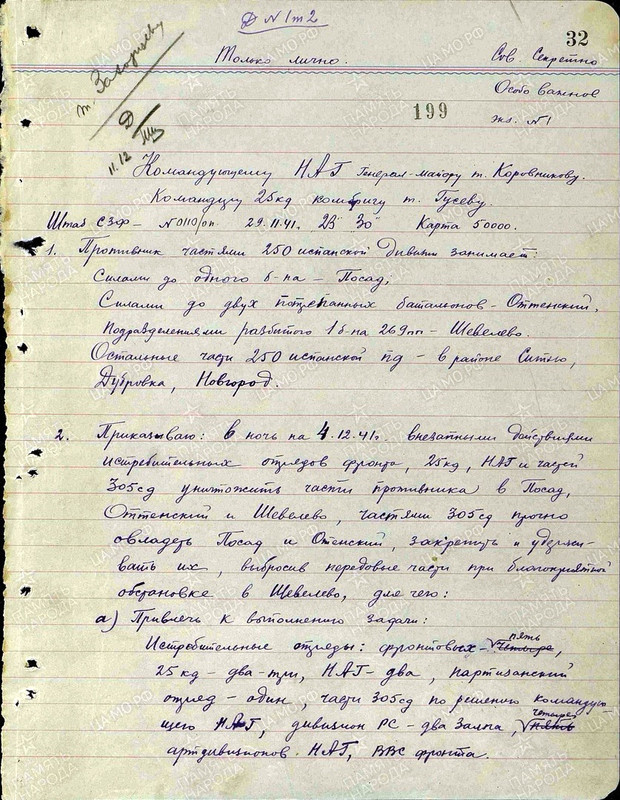 Д N 1 т 2
32
Только лично.
Сов. Секретно
Особо важное
199
экз. N1
т.
11.12
Командующему НАГ Генерал-майору т. Коровникову.
Командиру 25кд комбригу т. Гусеву.
Штаб СЗФ – N0110/оп 29.11.41. 23 30 Карта 50000.
1. Противник частями 250 испанской дивизии занимает:
Силами до одного б-на – Посад,
Силами до двух потрепанных батальонов – Оттенский,
Подразделениями разбитого 1 б-на 269пп – Шевелево.
Остальные части 250 испанской пд – в районе Ситно,
Дубровка, Новгород.
2. Приказываю: в ночь на 4.12.41г. внезапными действиями
истребительных отрядов фронта, 25кд, НАГ и частей
305сд уничтожить части противника в Посад,
Оттенский и Шевелево, частями 305сд прочно
овладеть Посад и Отенский, закрепить и удержи-
вать их, выбросив передовые части при благоприятной
обстановке в Шевелево, для чего:
а) Привлечь к выполнению задачи:
Истребительные отряды: фронтовых – пять четыре,
25 кд – два-три, НАГ – два, партизанский
отряд – один, части 305сд по решению командую-
щего НАГ, дивизион РС – два залпа, четыре пять
артдивизионов НАГ, ВВС фронта.
ПАМЯТЬ НАРОДА
ЦАМО.РФ